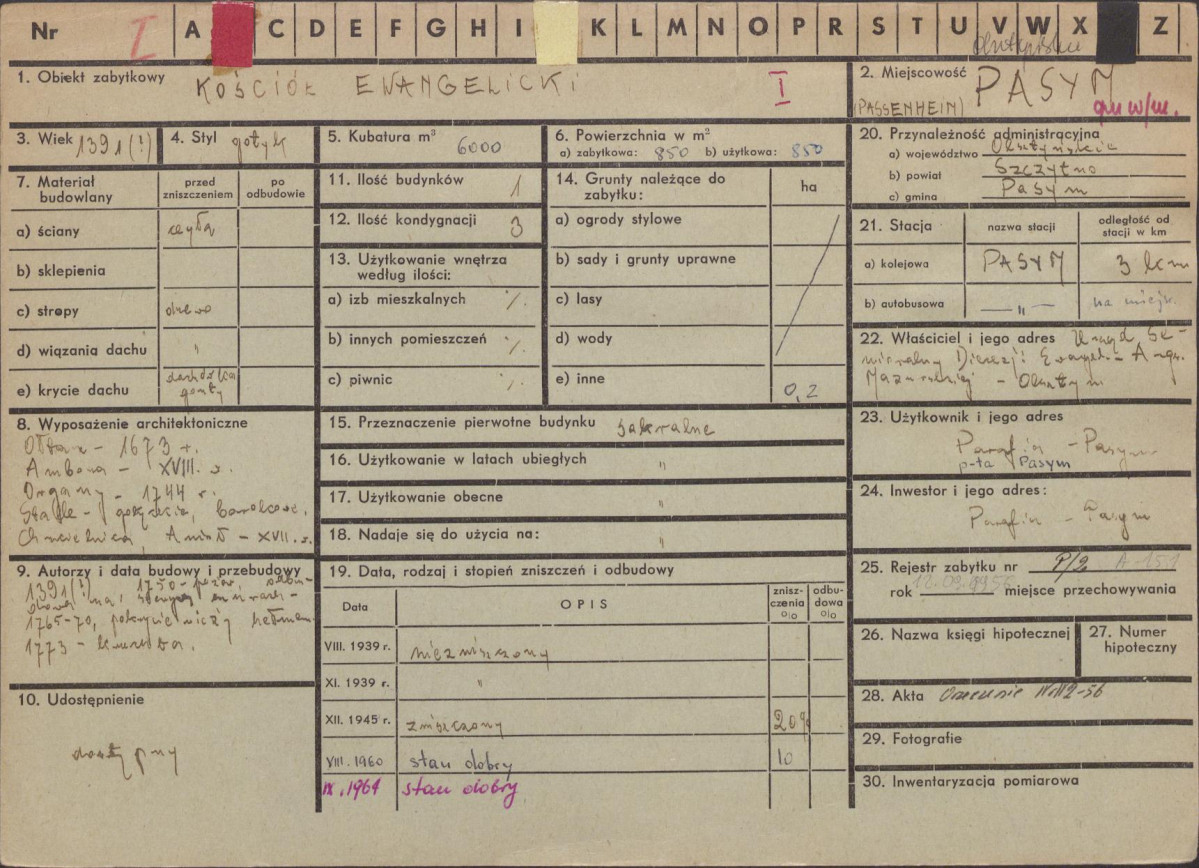 Nr I A C D E F G H I K L M N O P R S T U V W X Z
1. Obiekt zabytkowy KOŚCIÓŁ EWANGELICKI I
2. Miejscowość PASYM
(PASSENHEIN)
3. Wiek 1391 (!)
4. Styl gotyk
5. Kubatura m³ 6000
6. Powierzchnia w m²
a) zabytkowa: 850 b) użytkowa: 850
7. Materiał budowlany
przed zniszczeniem
po odbudowie
a) ściany cegła
b) sklepienia
c) stropy drewno
d) wiązania dachu "
e) krycie dachu dachówka
gonty
8. Wyposażenie architektoniczne
Ołtarz – 1673 r.
Ambona – XVIII. w.
Organy – 1744 r.
barokowe,
Chrzcielnica, Anioł – XVII. w.
9. Autorzy i data budowy i przebudowy
1391 (!) 1750 – pożar,
1765-70, pokrycie wieży hełmem
1773 –
10. Udostępnienie
dostępny
11. Ilość budynków 1
12. Ilość kondygnacji 3
13. Użytkowanie wnętrza
według ilości:
a) izb mieszkalnych ./.
b) innych pomieszczeń ./.
c) piwnic ./.
14. Grunty należące do
zabytku:
ha
a) ogrody stylowe
b) sady i grunty uprawne
c) lasy
d) wody
e) inne 0,2
15. Przeznaczenie pierwotne budynku sakralne
16. Użytkowanie w latach ubiegłych "
17. Użytkowanie obecne "
18. Nadaje się do użycia na: "
19. Data, rodzaj i stopień zniszczeń i odbudowy
Data OPIS znisz-
czenia
%
odbu-
dowa
%
VIII. 1939 r. niezniszczony
XI. 1939 r. "
XII. 1945 r. zniszczony 20%
VIII. 1960 stan dobry 10
IX. 1961 stan dobry
20. Przynależność administracyjna
a) województwo Olsztyńskie
b) powiat Szczytno
c) gmina Pasym
21. Stacja
nazwa stacji
odległość od
stacji w km
a) kolejowa PASYM 3 km
b) autobusowa — " — na miejsc.
22. Właściciel i jego adres Urząd Se-
nioralny Diecezji Ewangel. – Augs.
Mazurskiej – Olsztyn
23. Użytkownik i jego adres
Parafia – Pasym
p-ta Pasym
24. Inwestor i jego adres:
Parafia – Pasym
25. Rejestr zabytku nr P/2 A-151
rok miejsce przechowywania
26. Nazwa księgi hipotecznej
27. Numer
hipoteczny
28. Akta
29. Fotografie
30. Inwentaryzacja pomiarowa